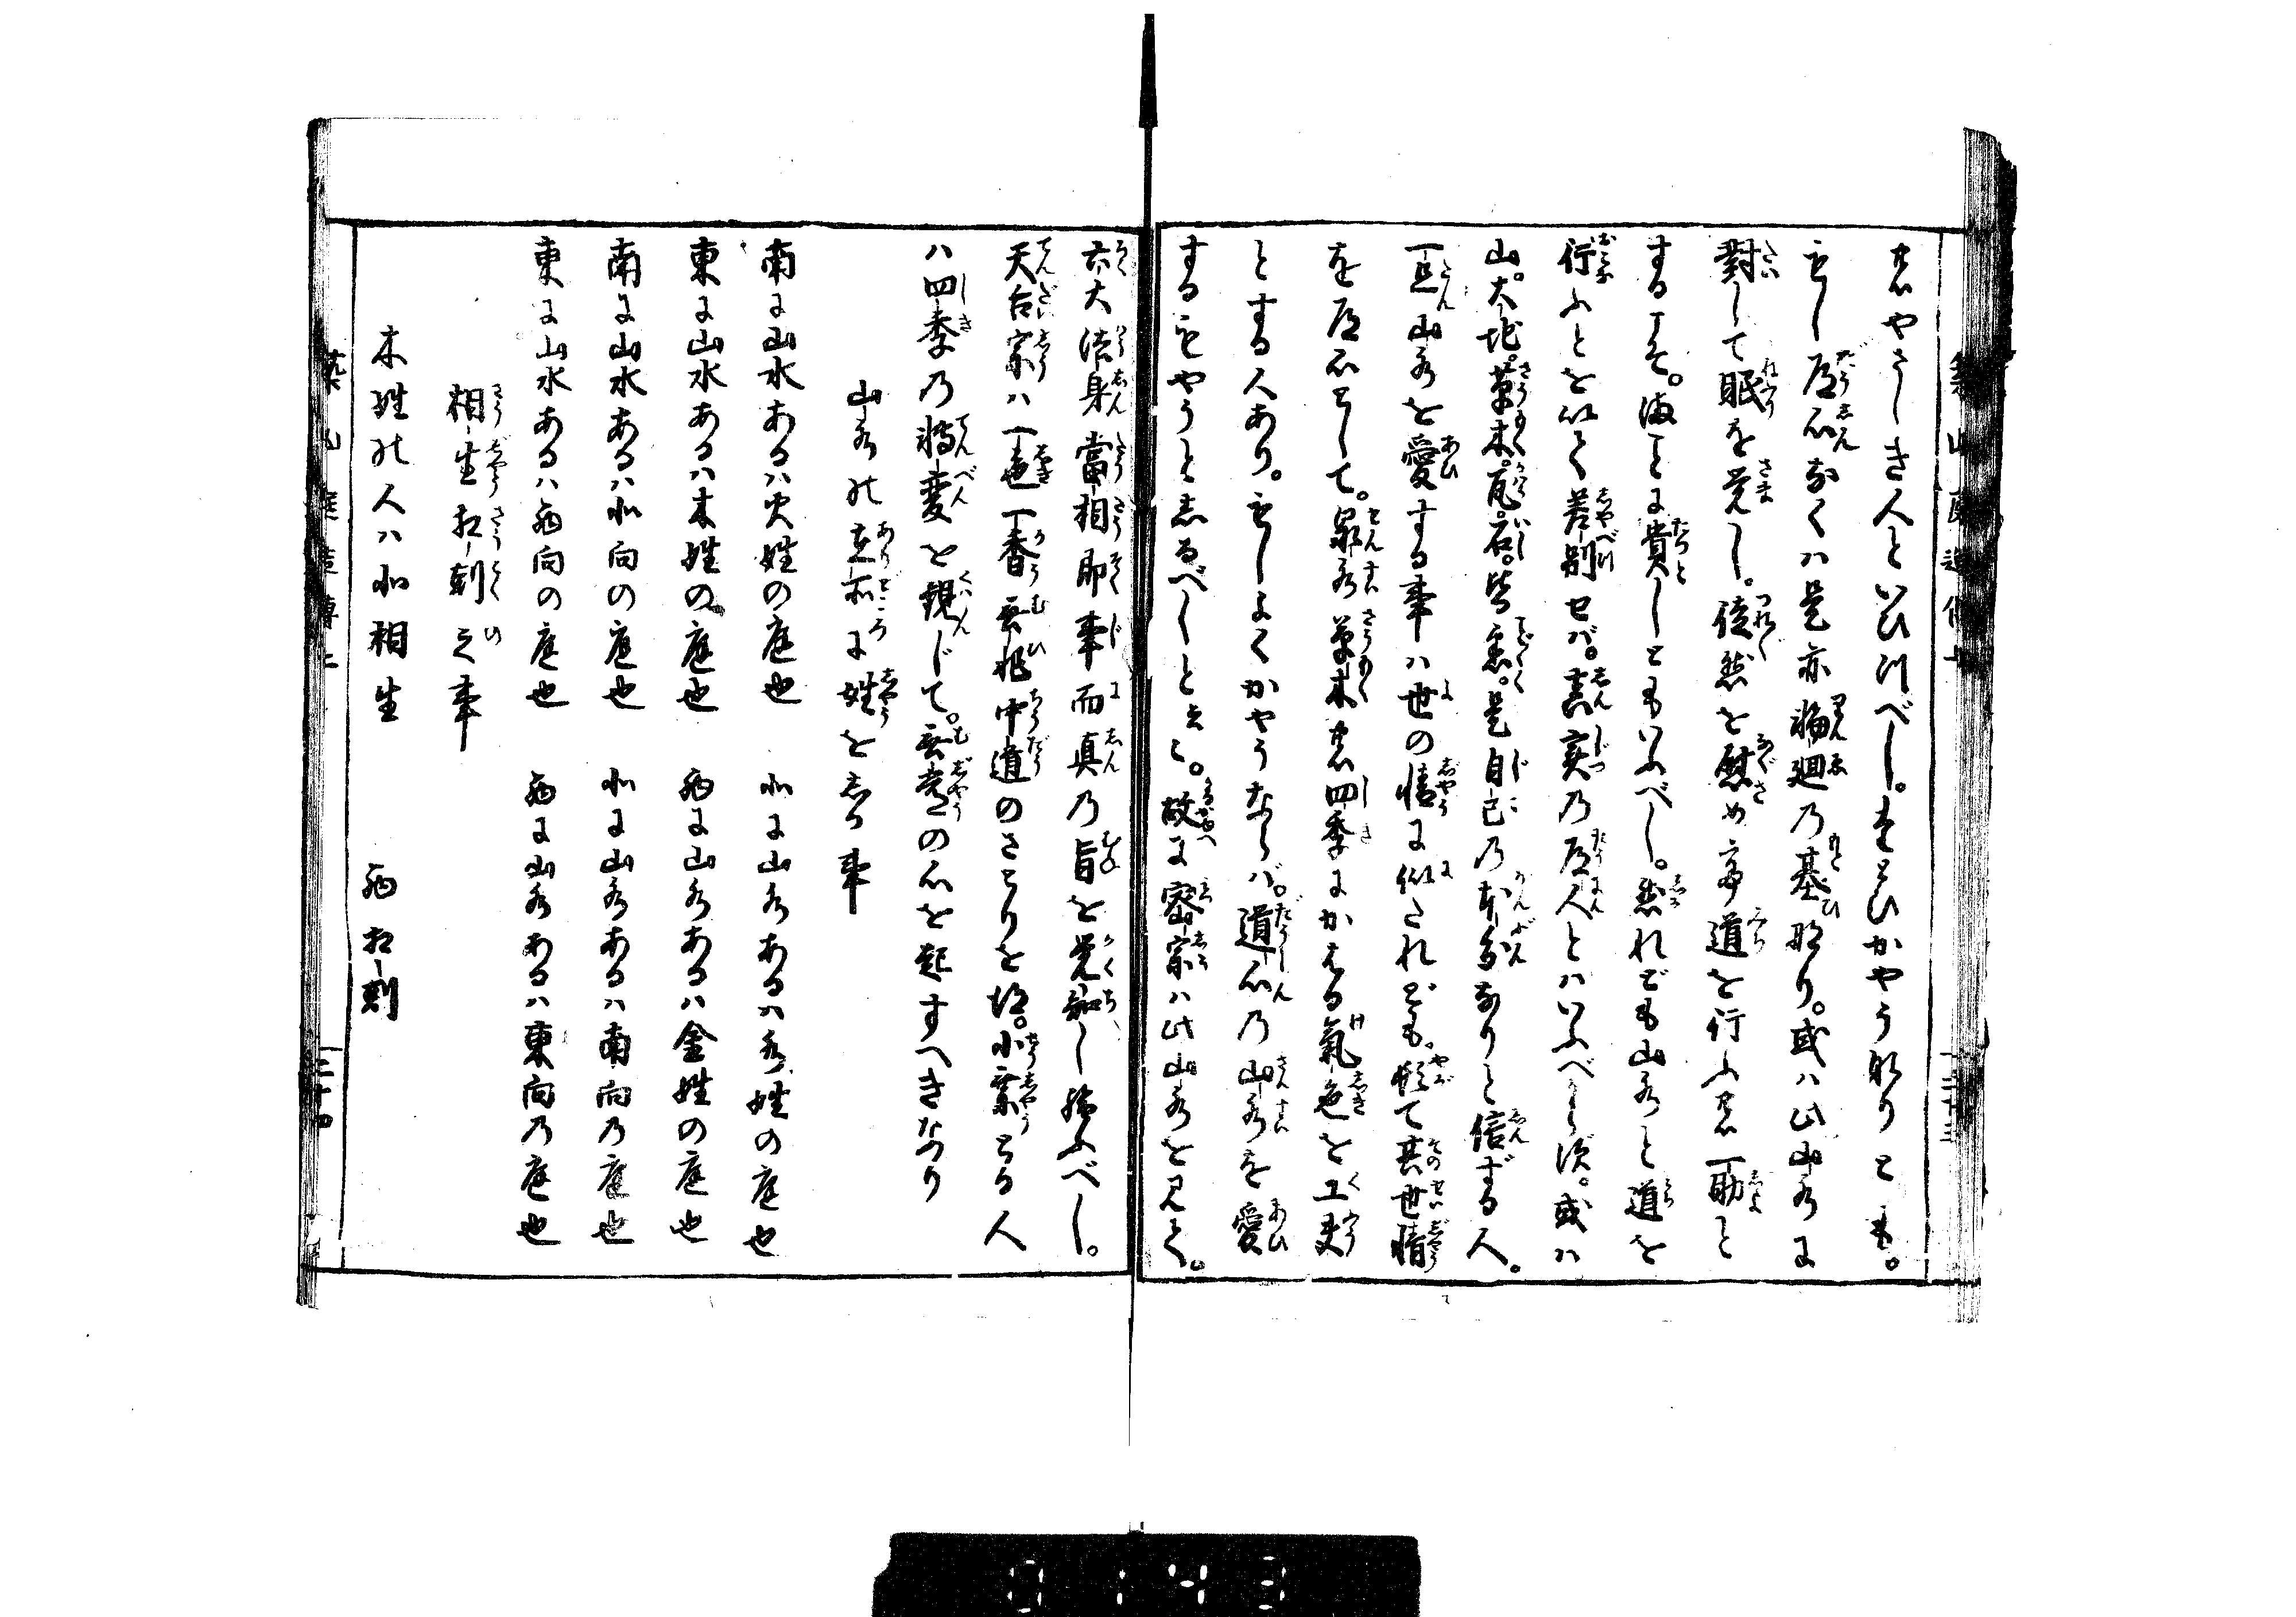 築山庭造傳上　二十三
はやさしき人といひつべし。たとひかやうなりとも。
もし道心なくハ是亦輪廻乃基ひなり。或ハ此山水に
對して眠を覚し。徒然を慰め亭道を行ふは一助と
するこそ。誠に貴しともいふべし。然れども山水と道を
行ふとを似て差別セバ。真実乃道人とハいふべからず。或ハ
山。大地。草木。瓦石。皆悉。是自己乃本分なりと信ずる人。
一旦山水を愛する事ハ世の情に似されども。頓て其世情
を道心として。泉水草木は四季にかはる氣色を工夫
とする人あり。もしよくかやうならバ。道心乃山水を愛
するもやうとしるべしと云々。故に密宗ハ此山水を見て。
六大法身當相即事而真乃旨を覚知し給ふべし。
天台宗ハ一色一香無非中道のさとりを得。小乗なる人
ハ四季乃轉変と観じて。無常の心を起すへきなり
山水の在所に姓をしる事
南に山水あるハ火姓の庭也　北に山水あるハ水姓の庭也
東に山水あるハ木姓の庭也　西に山水あるハ金姓の庭也
南に山水あるハ北向の庭也　北に山水あるハ南向乃庭也
東に山水あるハ西向の庭也　西に山水あるハ東向乃庭也
相生相剋之事
木姓の人ハ北相生　西相剋
築山庭造傳上　二十四
0143